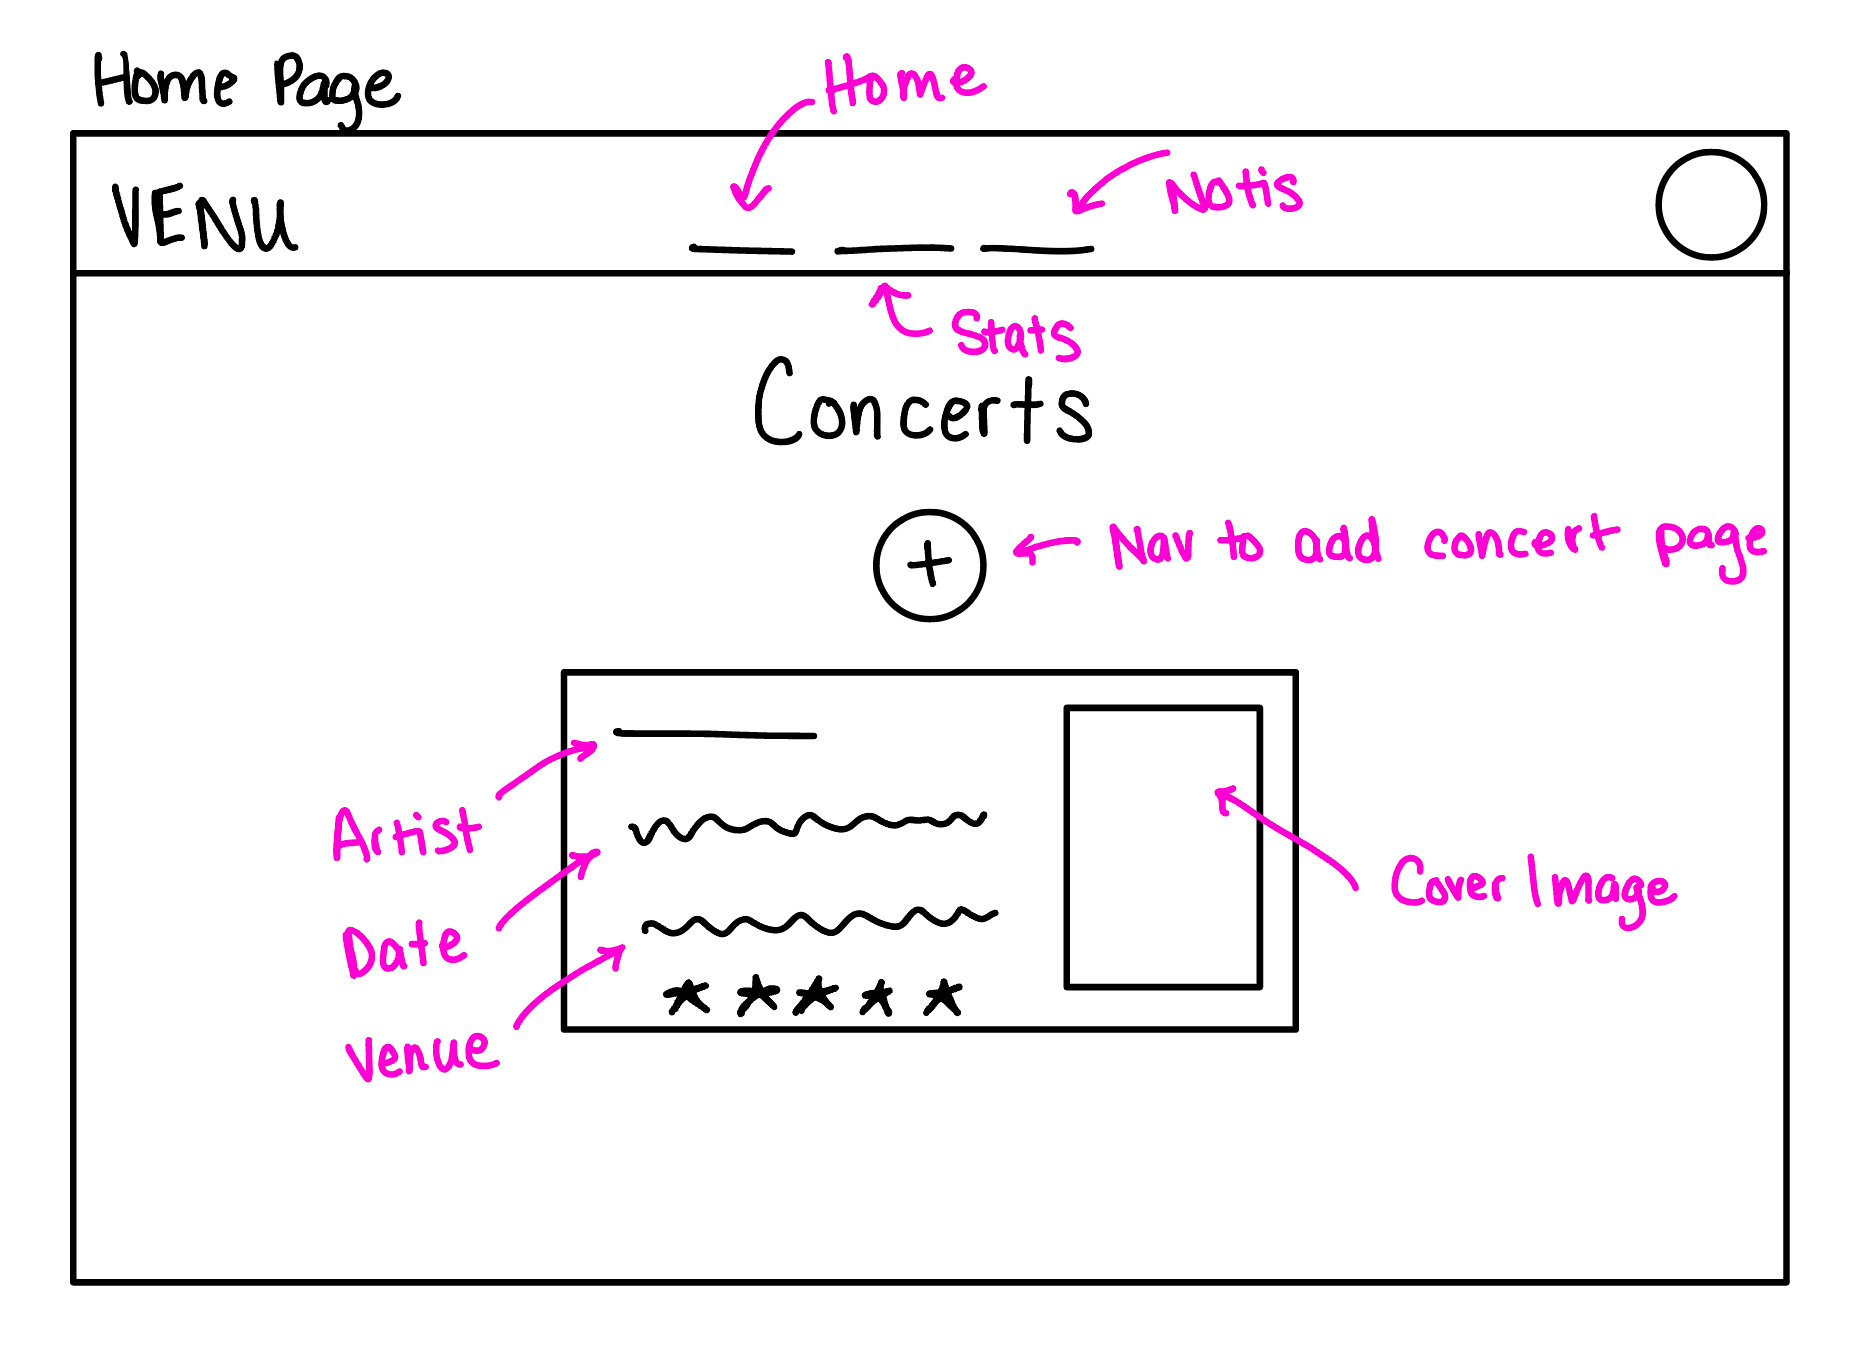 Home Page
Home
VENU
Notis
Stats
Concerts
+
Nav to add concert page
Artist
Date
Venue
Cover Image